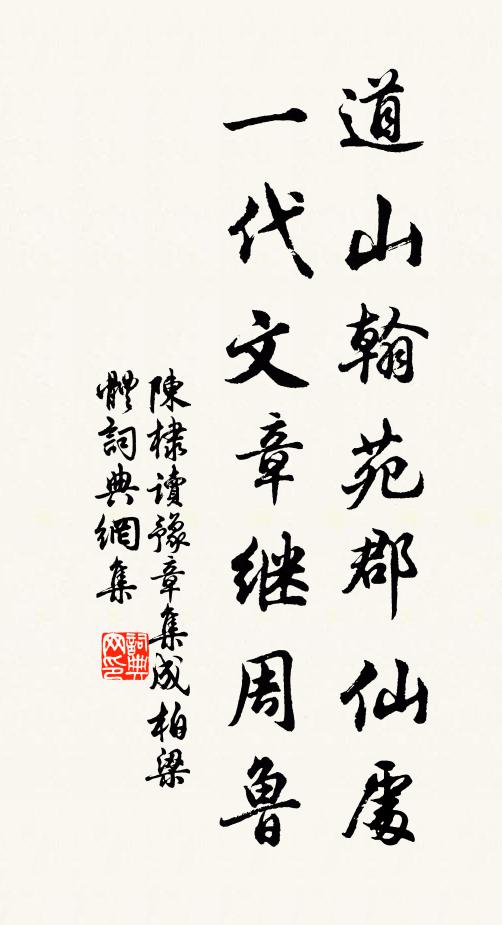 道山翰苑郡仙處
一代文章继周魯
陳棣讀豫章集成柏梁
體詞典網集
詞典
网印